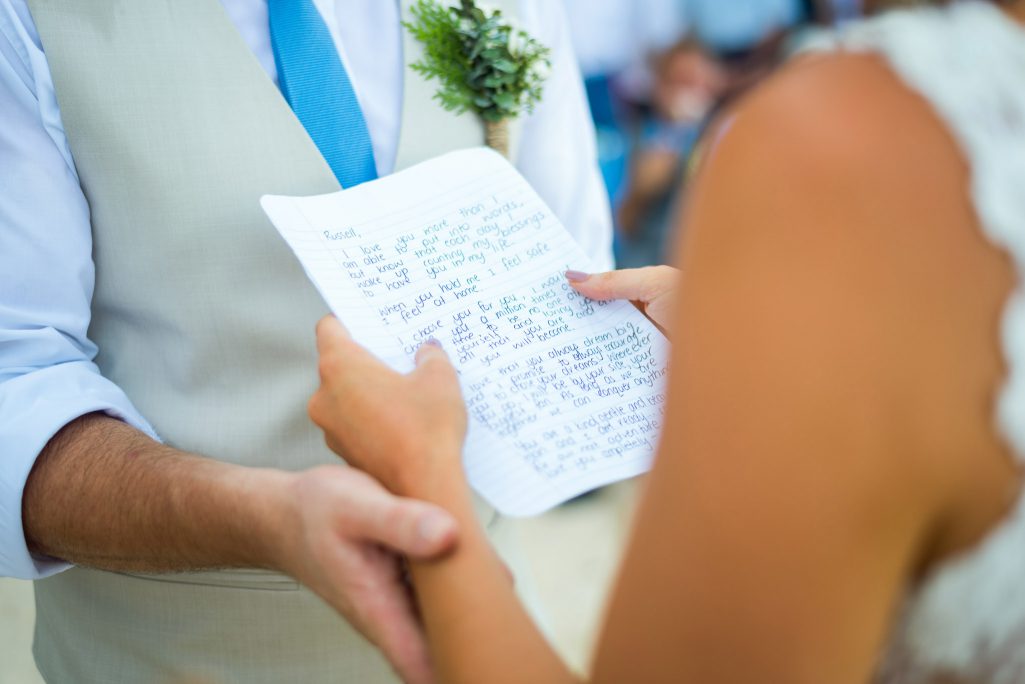 Russell,
I love you more than I
am able to put into words,
but know that each day I
wake up counting my blessings
to have you in my life.
When you hold me I feel safe
I feel at home.
I choose you for you, I would
you a million times
to be no one
yourself and loving
all that you are and
you will become.
love that you always dream big
and I promise to always
you to chase your dreams. Wherever
you go, I will be by your side, your
biggest fan. As long as we are
together we can conquer anything
You are a kind, gentle and
man and I am ready
for our next adventure
love you completely